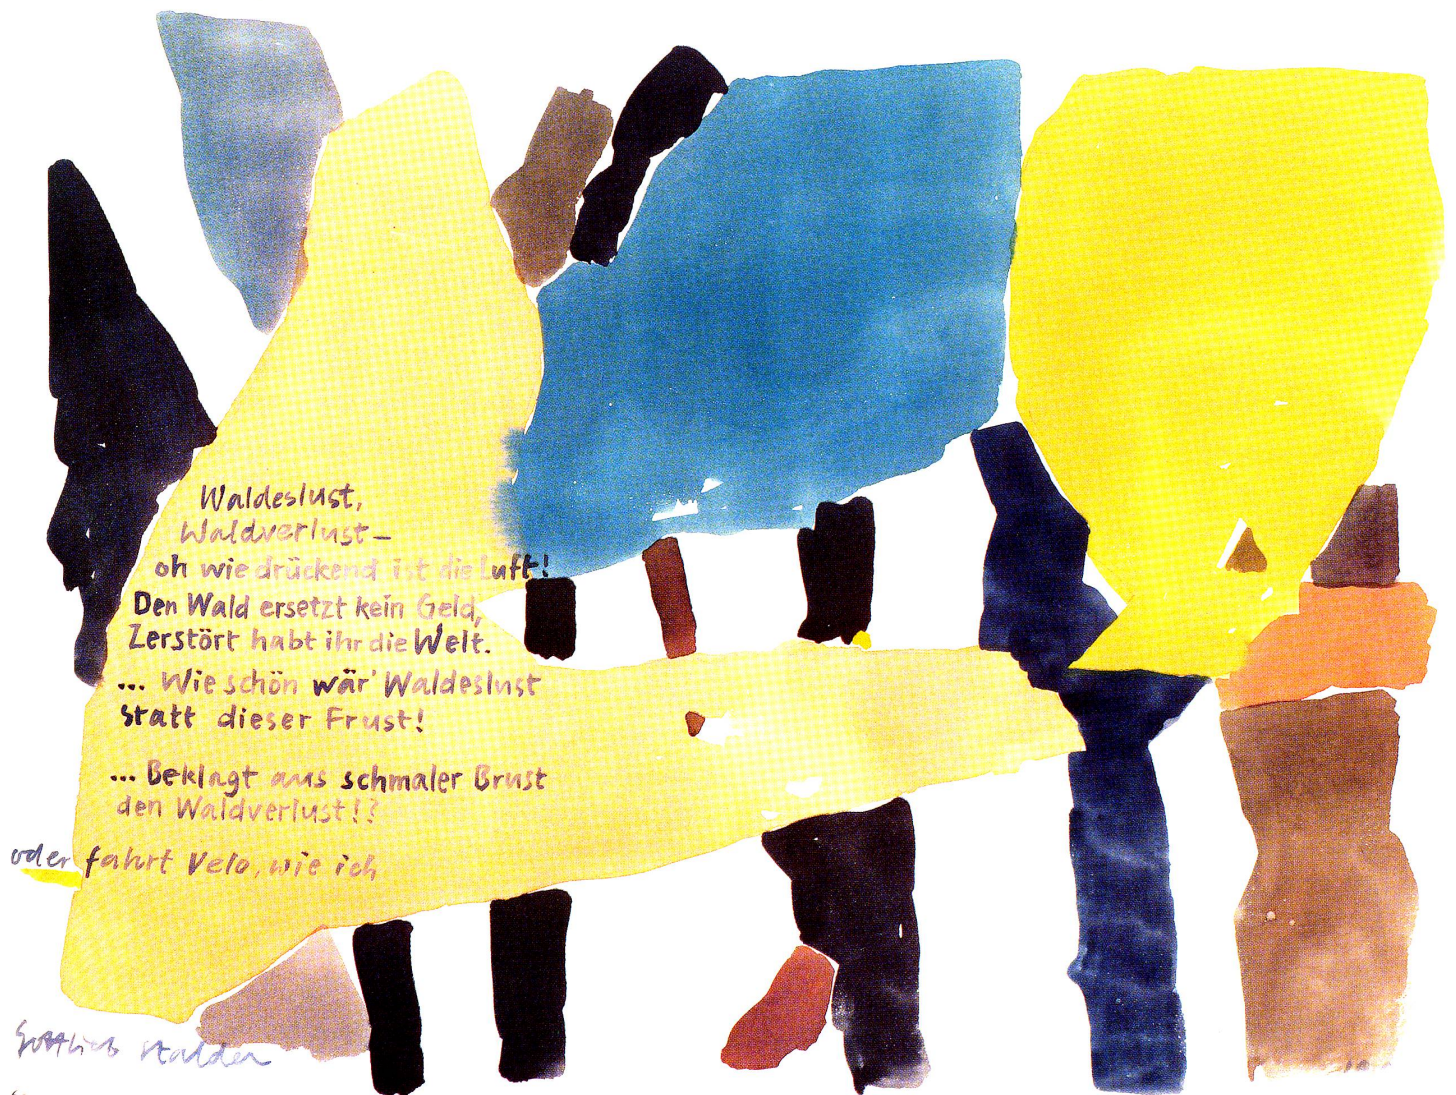 Waldeslust,
Waldverlust –
oh wie drückend ist die Luft!
Den Wald ersetzt kein Geld,
Zerstört habt ihr die Welt.
... Wie schön wär' Waldeslust
statt dieser Frust!
... Beklagt aus schmaler Brust
den Waldverlust!?
oder fahrt Velo, wie ich
Gottlieb Stalder